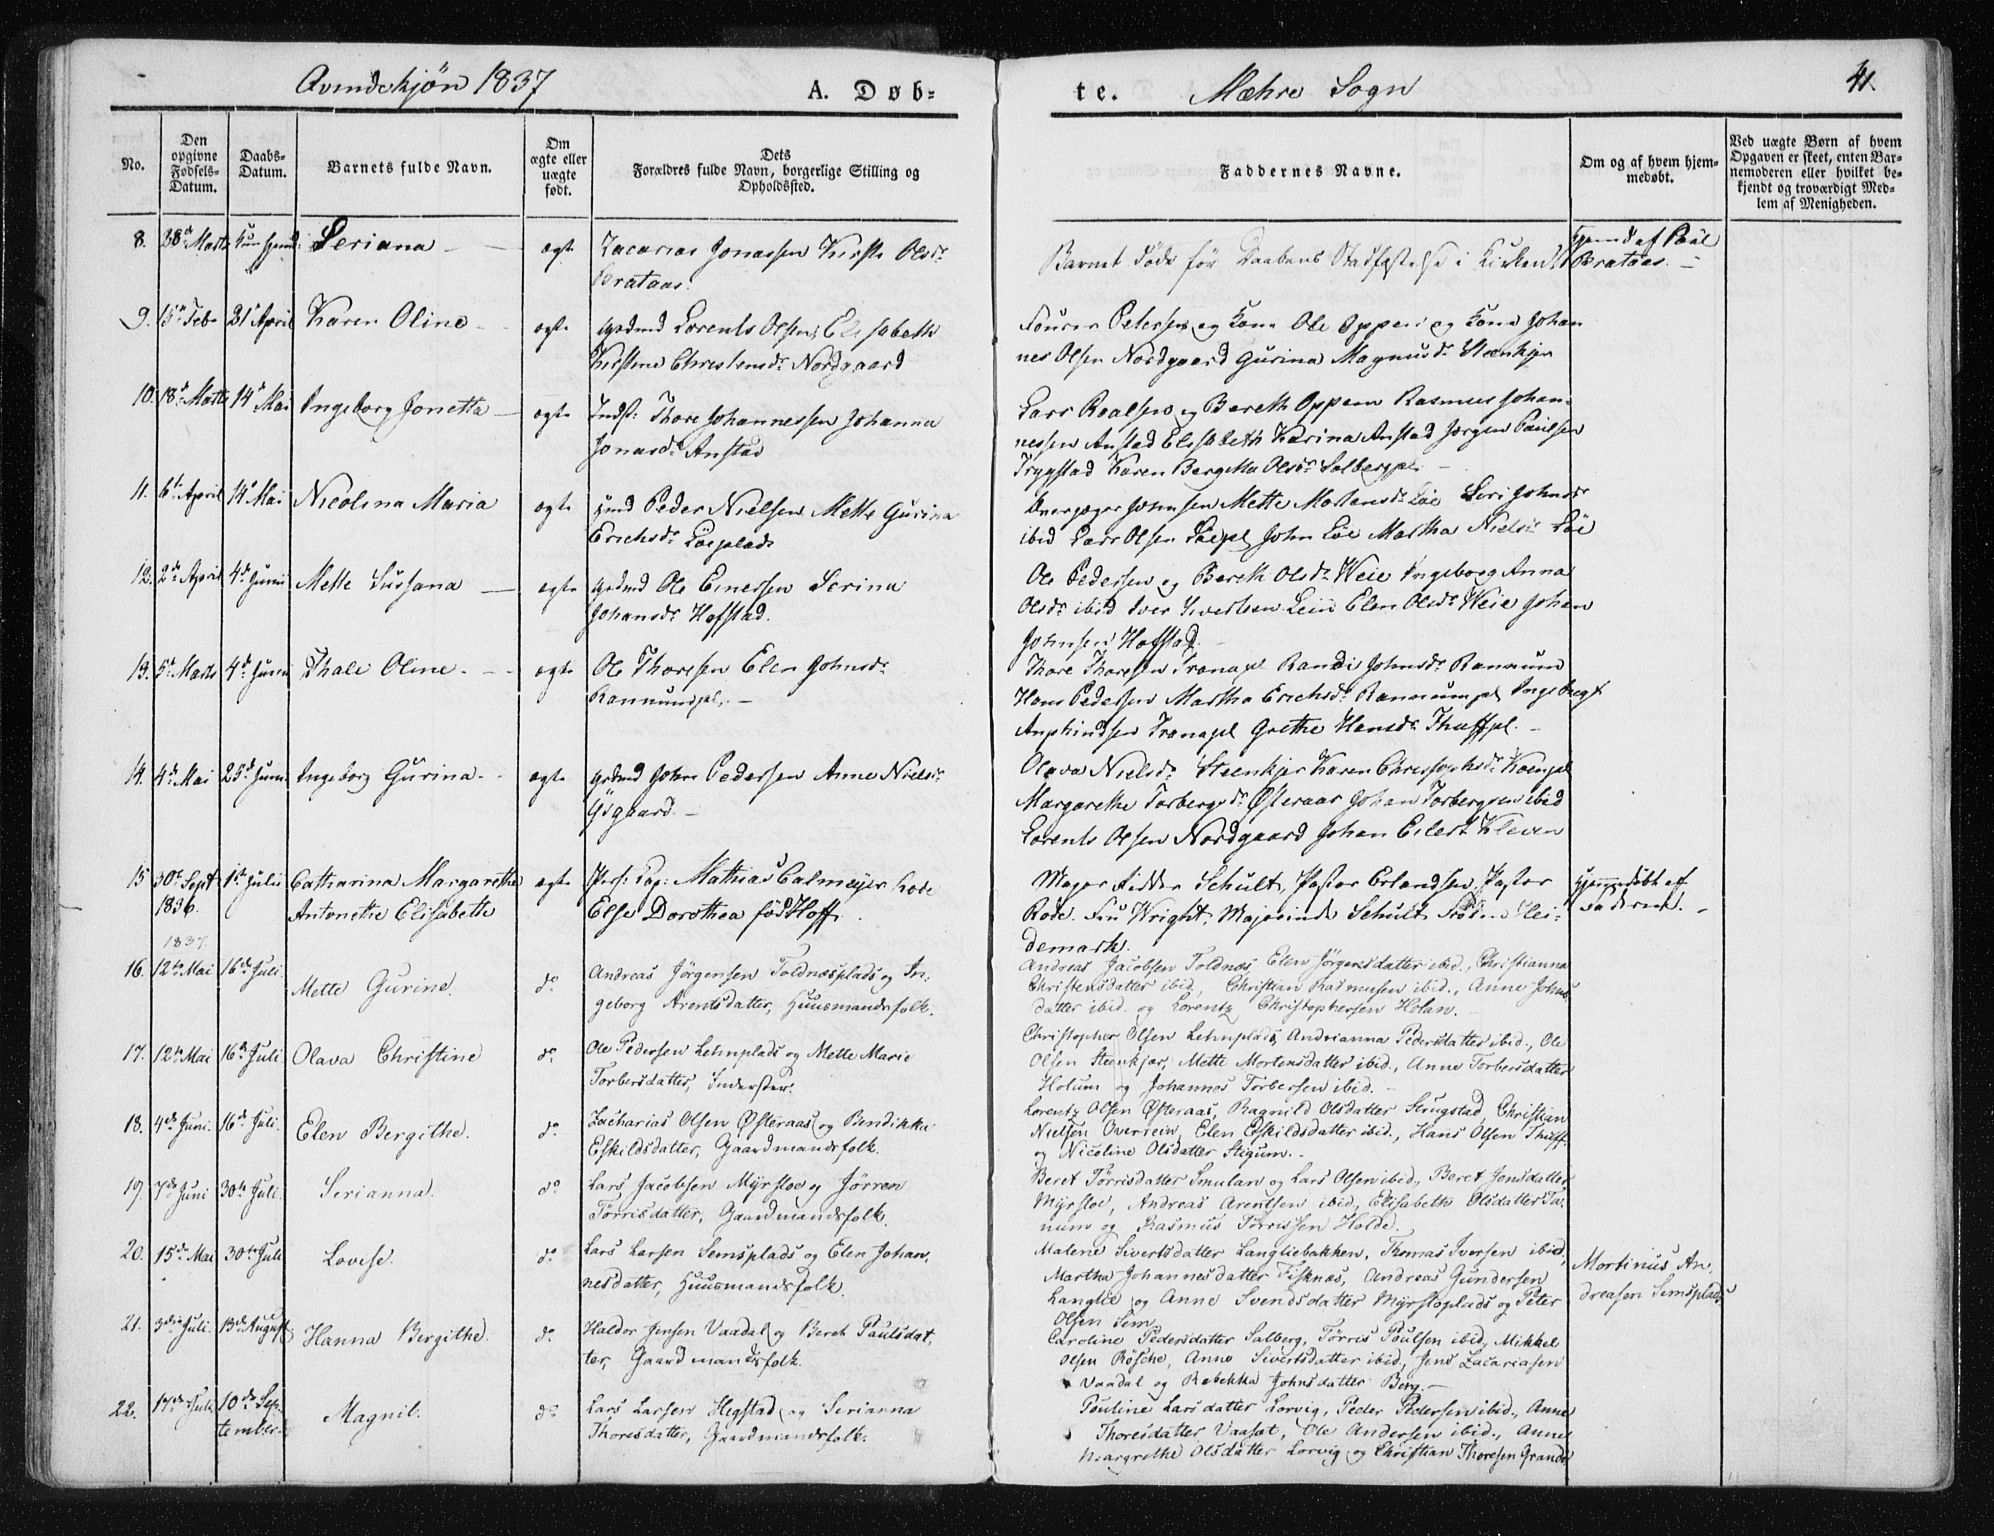 Qvindekjøn 1837
A. Døb-
te.
Mæhre Sogn
41.
No.
Den opgivne Fødsels-Datum.
Daabs-Datum.
Barnets fulde Navn.
Om ægte eller uægte født.
Dets Forældres fulde Navn, borgerlige Stilling og Opholdssted.
Faddernes Navne.
Om og af hvem hjem-medøbt.
Ved uægte Børn af hvem Opgaven er skeet, enten Bar-nemoderen eller hvilket be-kjendt og troværdigt Med-lem af Menigheden.
8. 28de Marts Seriana ægte Zacarias Jonassen Kirste Olsdr
Brataas.
Barnet døde før Daabens Stadfæstelse i Kirken
Hjemd af Poul
Brataas.
9. 15de Feb 21 April Karen Oline ægte Gdmd Lorents Olsen Elisabeth
Kirstine Christensdr Nordgaard
Petersen og Kone Ole Oppem og Kone Johan
nes Olsen Nordgaard Gurina Magnusdr Steenkjer
10. 18de Marts 14de Mai Ingeborg Jonetta ægte Indst: Thore Johannessen Johanna
Jonasdr Anstad
Lars Roalsen og Bereth Oppem Rasmus Johan-
nessen Anstad Elisabeth Karina Anstad Jørgen Paulsen
Trygstad Karen Bergitta Olsdr Salbergpl.
11. 6te April 14de Mai Nicolina Maria ægte Huusmd Peder Nielsen Mette Gurina
Erichsdr Løeplads
Johnsen Mette Mortensdr Løe Seri Johnsdr
ibid Lars Olsen Løepl John Løe Martha Nielsdr Løe
12. 2de April 4de Junii Mette Sussana ægte Gdmd Ole Einersen Serina
Johansdr Hofstad.
Ole Pedersen og Bereth Olsdr Weie Ingeborg Anna
Olsdr ibid Iver Iversen Lein Elen Olsdr Weie Johan
Johnsen Hofstad
13. 5te Marts 4de Junii Thale Oline. ægte Ole Thoresen Elen Johnsdr
Rannumspl.
Thore Thoresen Tranapl Randi Johnsdr Rannum
Hans Pedersen Martha Erichsdr Rannumpl Ingebregt
Anphindsen Tranapl Grethe Hansdr Thuffpl.
14. 4de Mai 25de Junii Ingeborg Gurina. ægte Gdmd Johan Pedersen Anne Nielsdr
Gisgaard.
Olava Nielsdr Steenkjer Karen Christophdr
Margarethe Torbergsdr Østeraas Johan Torbergsen ibid
Lorents Olsen Nordgaard Johan Eilert Kleven
15 30te Sept 1836. 1ste Julii Catharina Margarethe
Antonethe Elisabeth ægte Pers: Cap: Mathias Calmeyer
Else Dorothea født Hoff.
Major Ridder Schult, Pastor Erlandsen, Pastor
Rode. Fru Wright, Majorinde Schult Frøken Hei-
demark.
Hjemmedøbt af
Faderen.
1837
16. 12te Mai 16de Juli. Mette Gurine. do Andreas Jörgensen Toldnæsplads og In-
geborg Arentsdatter, Huusmandsfolk.
Andreas Jacobsen Toldnæs, Elen Jörgensdatter ibid., Christianna
Christensdatter ibid, Christian Rasmusen ibid., Anne Johns
datter ibid. og Lorentz Christophersen Holan.
17. 12te Mai 16de Juli Olava Christine do Ole Pedersen Lehnplads og Mette Marie
Torbersdatter, Inderster.
Christopher Olsen Lehnplads, Andrianna Pedersdatter ibid., Ole
Olsen Steenkjær, Mette Mortensdatter ibid., Anne Torbersdatter
Holum og Johannes Torbersen ibid.
18. 4de Juni. 16de Juli. Elen Bergithe. do Zacharias Olsen Østeraas og Bendikka
Eskildsdatter, Gaardmandsfolk.
Lorentz Olsen Østeraas, Ragnild Olsdatter Skrugstad, Christian
Nielsen Overrein, Elen Eskildsdatter ibid., Hans Olsen Thuff
og Nicoline Olsdatter Stigum.
19. 7de Juni 30te Juli. Serianna. do Lars Jacobsen Myrsloe og Jörren
Törrisdatter, Gaardmandsfolk.
Beret Törrisdatter Smulan og Lars Olsen ibid., Beret Jensdatter
Myrsloe, Andreas Arentsen ibid, Elisabeth Olsdatter Ta-
num og Rasmus Törrissen Holde.
20. 15de Mai 30te Juli Lovise. do Lars Larsen Semsplads og Elen Johan-
nesdatter, Huusmandsfolk.
Malene Sivertsdatter Langliebakken, Thomas Iversen ibid,
Martha Johannesdatter Fisknæs, Andreas Gundersen
Langlie og Anne Svendsdatter Myrsloplads og Peter
Olsen Sem
Mortinus An-
dreasen Semsplads
21. 3die Juli. 13de August Hanna Bergithe. do Haldor Jensen Vaadal og Bereth Paulsdat-
ter, Gaardmandsfolk.
Caroline Pedersdatter Salberg, Törris Poulsen ibid, Mikkel
Olsen Rösche, Anne Sivertsdatter ibid, Jens Zacariasen
Vaadal og Rebekka Johnsdatter Berg.
22. 17de Juli 10de Sep-
tember. Magnil. do Lars Larsen Hegstad og Serianna
Thoresdatter, Gaardmandsfolk.
Pauline Larsdatter Lorvig, Peder Pedersen ibid., Anne
Thoresdatter Vaaset, Ole Andersen ibid., Anne
Margrethe Olsdatter Lorvig og Christian Thoresen Grande